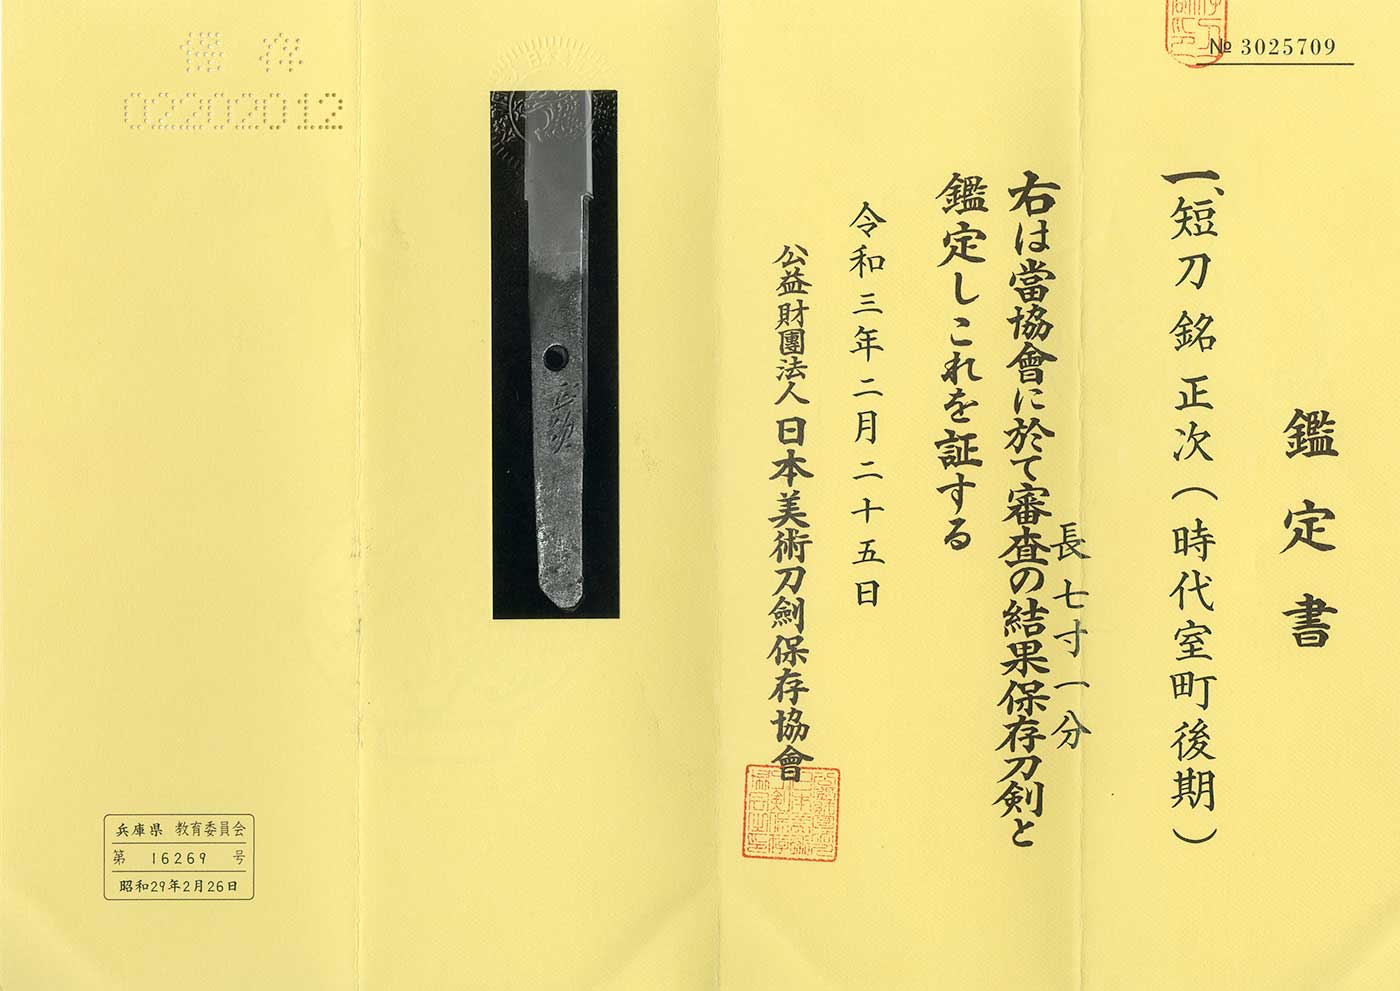 № 3025709
鑑定書
一、短刀 銘 正次(時代室町後期)
長 七寸一分
右は當協會に於て審査の結果保存刀剣と
鑑定しこれを証する
令和三年二月二十五日
公益財團法人 日本美術刀劍保存協會
正次
保存
02202012
兵庫県 教育委員会
第 16269 号
昭和29年2月26日